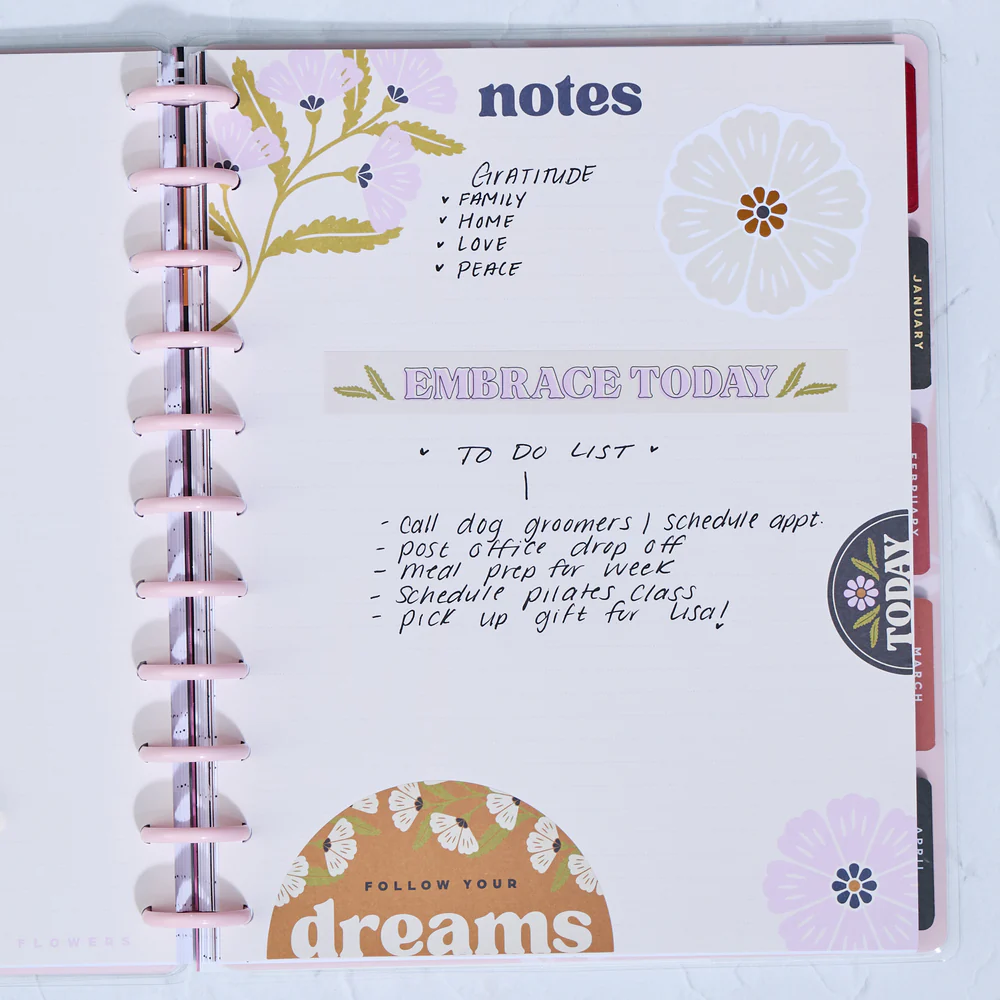 notes
GRATITUDE
FAMILY
HOME
LOVE
PEACE
EMBRACE TODAY
TO DO LIST
- call dog groomers / schedule appt.
- post office drop off
- meal prep for week
- schedule pilates class
- pick up gift for Lisa!
FOLLOW YOUR
dreams
JANUARY
FEBRUARY
TODAY
MARCH
APRIL
FLOWERS